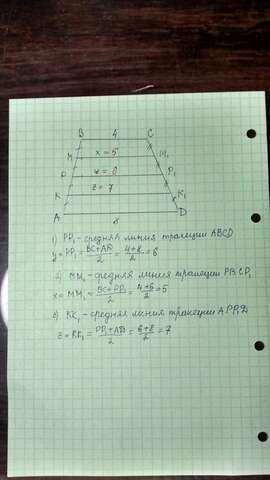 B 4 C
M x = 5 M₁
P y = 6 P₁
K z = 7 K₁
A 8 D
1) PP₁ - средняя линия трапеции ABCD
y = PP₁ = BC+AD/2 = 4+8/2 = 6
2) MM₁ - средняя линия трапеции PBCP₁
x = MM₁ = BC+PP₁/2 = 4+6/2 = 5
3) KK₁ - средняя линия трапеции APP₁D
z = KK₁ = PP₁+AD/2 = 6+8/2 = 7